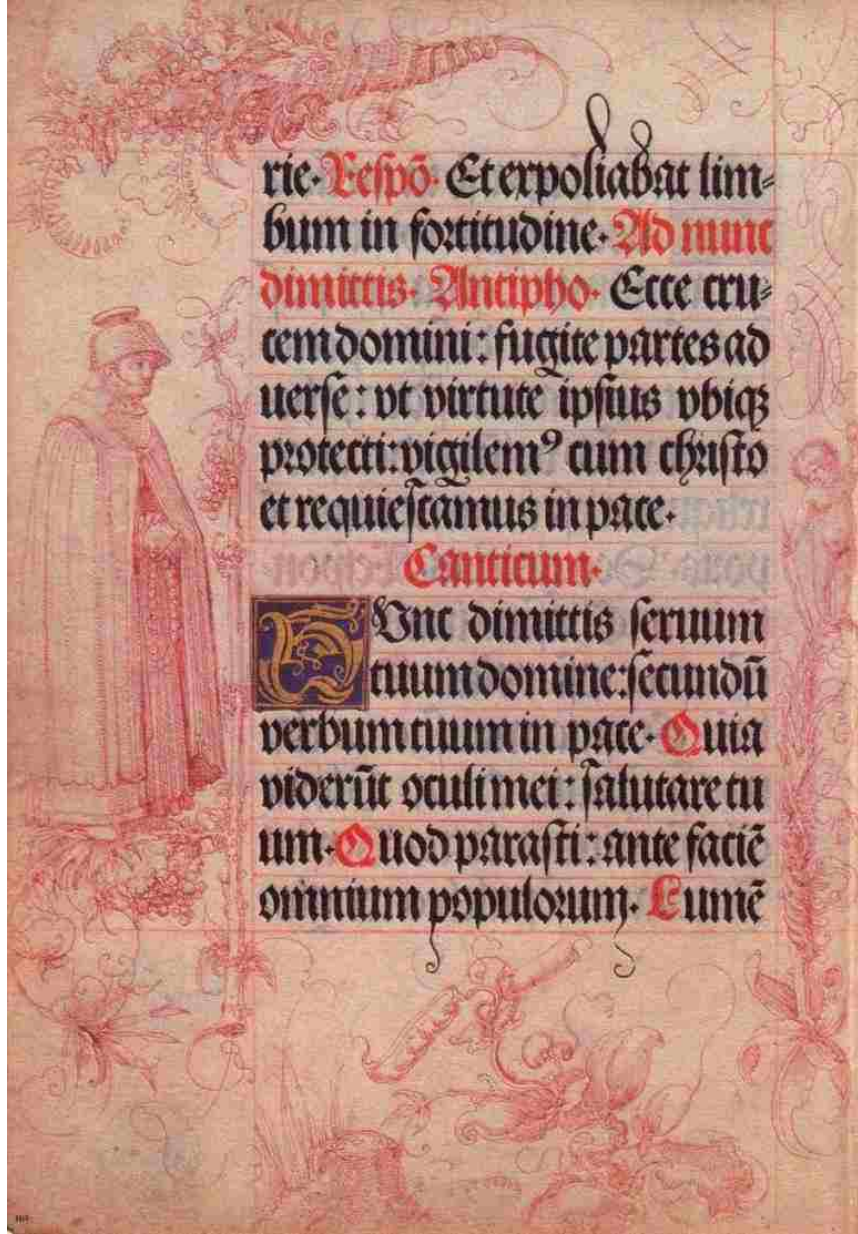 rie. Respō. Et expoliabat lim⸗
bum in fortitudine. Ad nunc
dimittis. Antipho. Ecce cru⸗
cem domini: fugite partes ad
uerse: vt virtute ipsius vbiqꝫ
protecti: vigilemꝰ cum christo
et requiescamus in pace.
Canticum.
NVnc dimittis seruum
tuum domine: secundū
verbum tuum in pace. Quia
viderūt oculi mei: salutare tu
um. Quod parasti: ante faciē
omnium populorum. Lumē